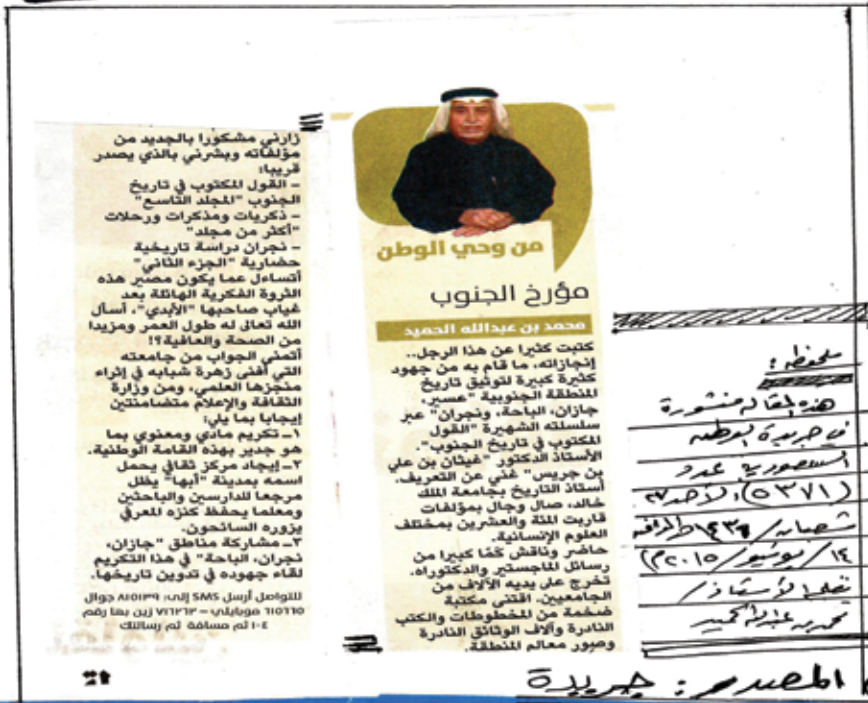 من وحي الوطن
مؤرخ الجنوب
محمد بن عبدالله الحميد
كتبت كثيرا عن هذا الرجل..
إنجازاته، ما قام به من جهود
كثيرة كبيرة لتوثيق تاريخ
المنطقة الجنوبية "عسير،
جازان، الباحة، ونجران" عبر
سلسلته الشهيرة "القول
المكتوب في تاريخ الجنوب".
الأستاذ الدكتور "غيثان بن علي
بن جريس" غني عن التعريف.
أستاذ التاريخ بجامعة الملك
خالد، صال وجال بمؤلفات
قاربت المئة والعشرين بمختلف
العلوم الإنسانية.
حاضر وناقش كمّا كبيرا من
رسائل الماجستير والدكتوراه.
تخرج على يديه الآلاف من
الجامعيين. اقتنى مكتبة
ضخمة من المخطوطات والكتب
النادرة وآلاف الوثائق النادرة
وصور معالم المنطقة.
زارني مشكورا بالجديد من
مؤلفاته وبشرني بالذي يصدر
قريبا:
- القول المكتوب في تاريخ
الجنوب "المجلد التاسع"
- ذكريات ومذكرات ورحلات
"أكثر من مجلد"
- نجران دراسة تاريخية
حضارية "الجزء الثاني"
أتساءل عما يكون مصير هذه
الثروة الفكرية الهائلة بعد
غياب صاحبها "الأبدي"، أسأل
الله تعالى له طول العمر ومزيدا
من الصحة والعافية؟!
أتمنى الجواب من جامعته
التي أفنى زهرة شبابه في إثراء
منجزها العلمي، ومن وزارة
الثقافة والإعلام متضامنتين
إيجابا بما يلي:
١ـ تكريم مادي ومعنوي بما
هو جدير بهذه القامة الوطنية.
٢ـ إيجاد مركز ثقافي يحمل
اسمه بمدينة "أبها" يظل
مرجعا للدارسين والباحثين
ومعلما يحفظ كنزه المعرفي
يزوره السائحون.
٣ـ مشاركة مناطق "جازان،
نجران، الباحة" في هذا التكريم
لقاء جهوده في تدوين تاريخها.
للتواصل أرسل SMS إلى: ٨٤٥١٣٩ جوال
٦١٥٦٦٥ موبايلي – ٧١٦٢٦٣ زين بها رقم
١٠٤ ثم مسافة ثم رسالتك
ملحوظة:
هذه المقالة منشورة
في جريدة الوطن
السعودية عدد
(٥٣٧١) الأحد ٢٧
شعبان/١٤٣٦هـ الموافق
١٤/يونيو/٢٠١٥م)
بقلم الأستاذ/
محمد بن عبدالله الحميد
المصدر: جريدة